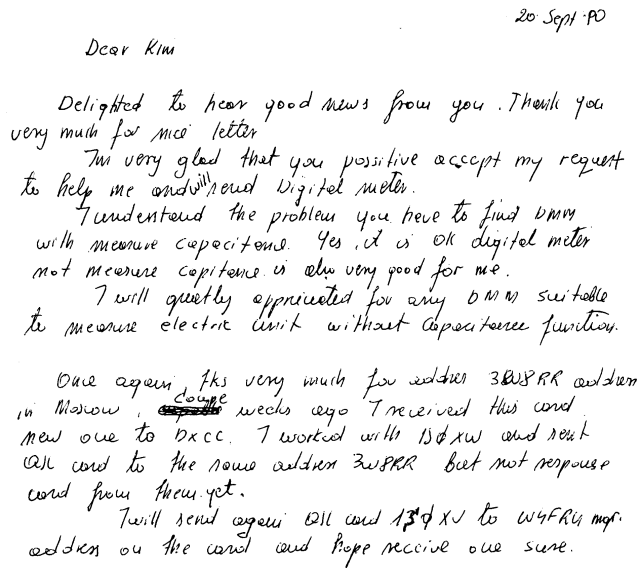 20 Sept 90
Dear Kim
Delighted to hear good news from you. Thank you
very much for nice letter
I'm very glad that you possitive accept my request
to help me and will send Digital meter.
I understand the problem you have to find DMM
with measure capacitance. Yes, it is OK digital meter
not measure capitance is also very good for me.
I will greatly appriciated for any DMM suitable
to measure electric unit without capacitance function.
Once again, tks very much for addres 3W8RR address
in Moscow, coupe weeks ago I received this card
new one to DXCC. I worked with 1SØXV and sent
QSL card to the same address 3W8RR but not response
card from them yet.
I will send again QSL card 1SØXV to W4FRU mgr.
address on the card and hope receive one sure.